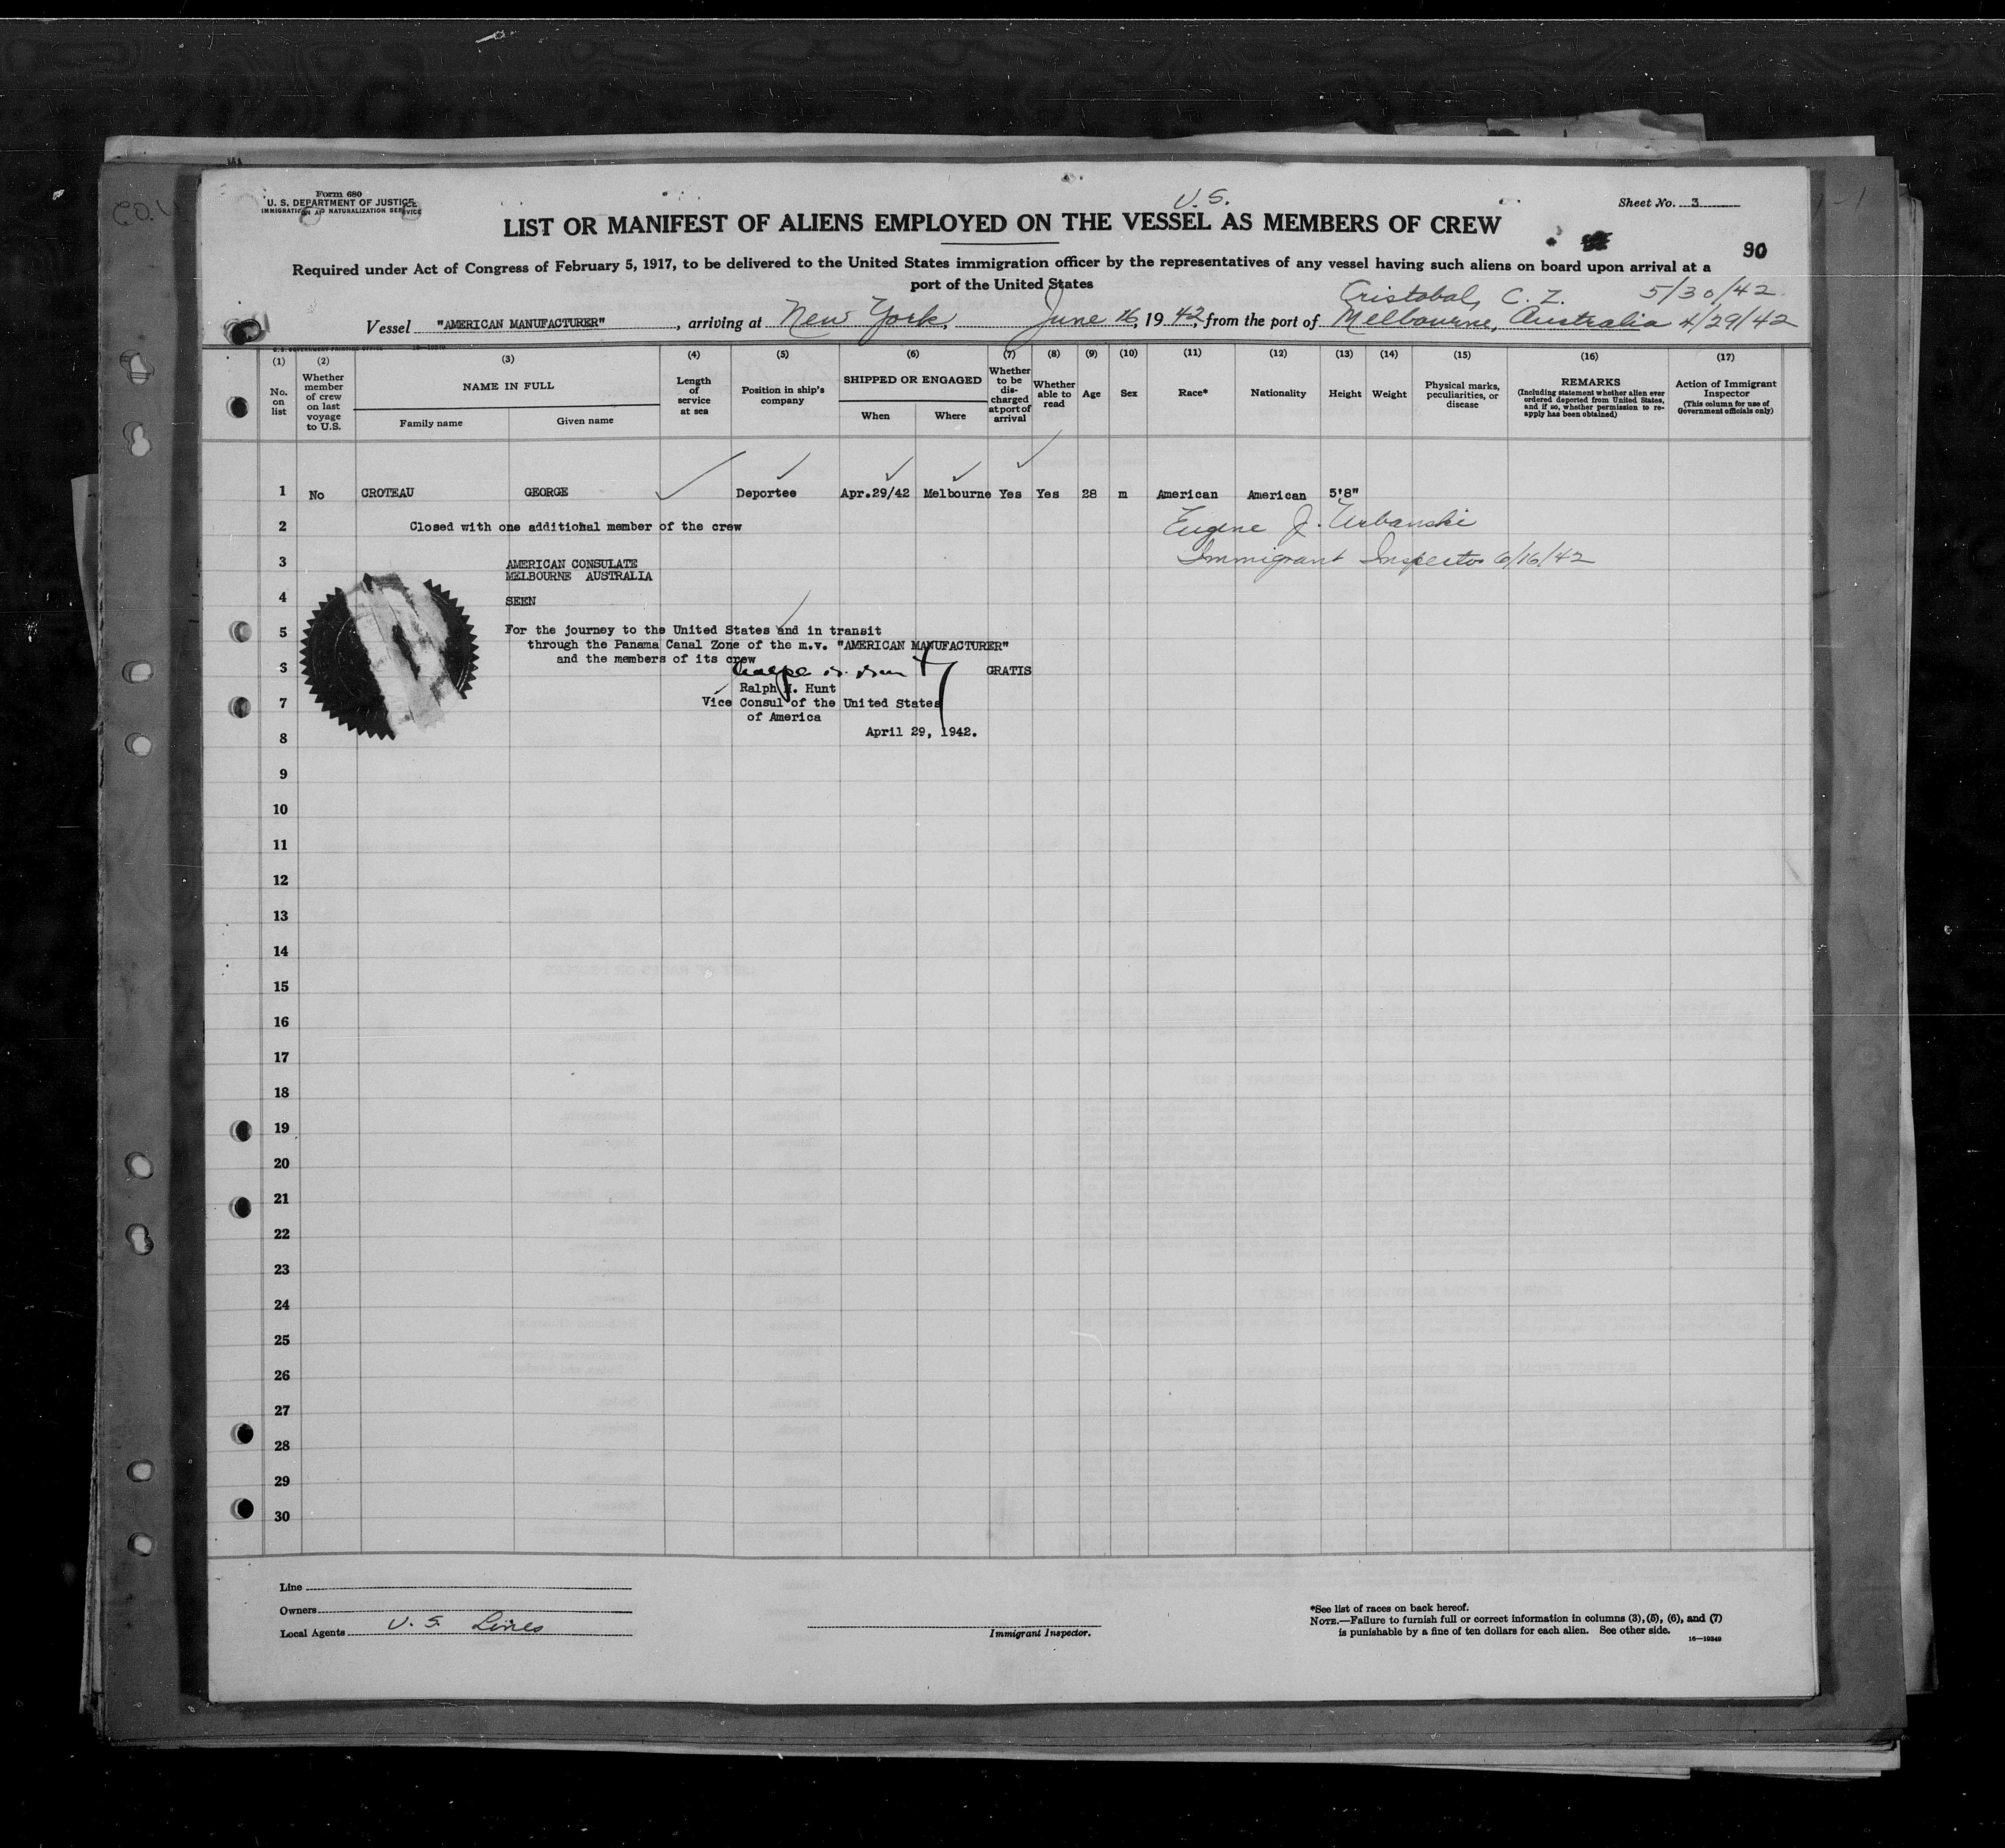 Form 680
U. S. DEPARTMENT OF JUSTICE
IMMIGRATION AND NATURALIZATION SERVICE
U. S.
Sheet No. 3
LIST OR MANIFEST OF ALIENS EMPLOYED ON THE VESSEL AS MEMBERS OF CREW
90
Required under Act of Congress of February 5, 1917, to be delivered to the United States immigration officer by the representatives of any vessel having such aliens on board upon arrival at a
port of the United States
Cristobal, C. Z. 5/30/42
Vessel "AMERICAN MANUFACTURER", arriving at New York, June 16, 1942, from the port of Melbourne, Australia 4/29/42
U.S. GOVERNMENT PRINTING OFFICE 16—19349
(1) (2) (3) (4) (5) (6) (7) (8) (9) (10) (11) (12) (13) (14) (15) (16) (17)
No. on list
Whether member of crew on last voyage to U.S.
NAME IN FULL
Family name
Given name
Length of service at sea
Position in ship's company
SHIPPED OR ENGAGED
When
Where
Whether to be discharged at port of arrival
Whether able to read
Age
Sex
Race*
Nationality
Height
Weight
Physical marks, peculiarities, or disease
REMARKS
(Including statement whether alien ever ordered deported from United States, and if so, whether permission to re-apply has been obtained)
Action of Immigrant Inspector
(This column for use of Government officials only)
1 No CROTEAU GEORGE Deportee Apr.29/42 Melbourne Yes Yes 28 m American American 5'8"
2 Closed with one additional member of the crew Eugene J. Urbanski
Immigrant Inspector 6/16/42
3 AMERICAN CONSULATE
MELBOURNE AUSTRALIA
4 SEEN
5 For the journey to the United States and in transit
through the Panama Canal Zone of the m.v. "AMERICAN MANUFACTURER"
and the members of its crew
6 GRATIS
Ralph H. Hunt
7 Vice Consul of the United States
of America
8 April 29, 1942.
9
10
11
12
13
14
15
16
17
18
19
20
21
22
23
24
25
26
27
28
29
30
Line
Owners
Local Agents U. S. Lines
Immigrant Inspector.
*See list of races on back hereof.
NOTE.—Failure to furnish full or correct information in columns (3), (5), (6), and (7)
is punishable by a fine of ten dollars for each alien. See other side.
16—19349